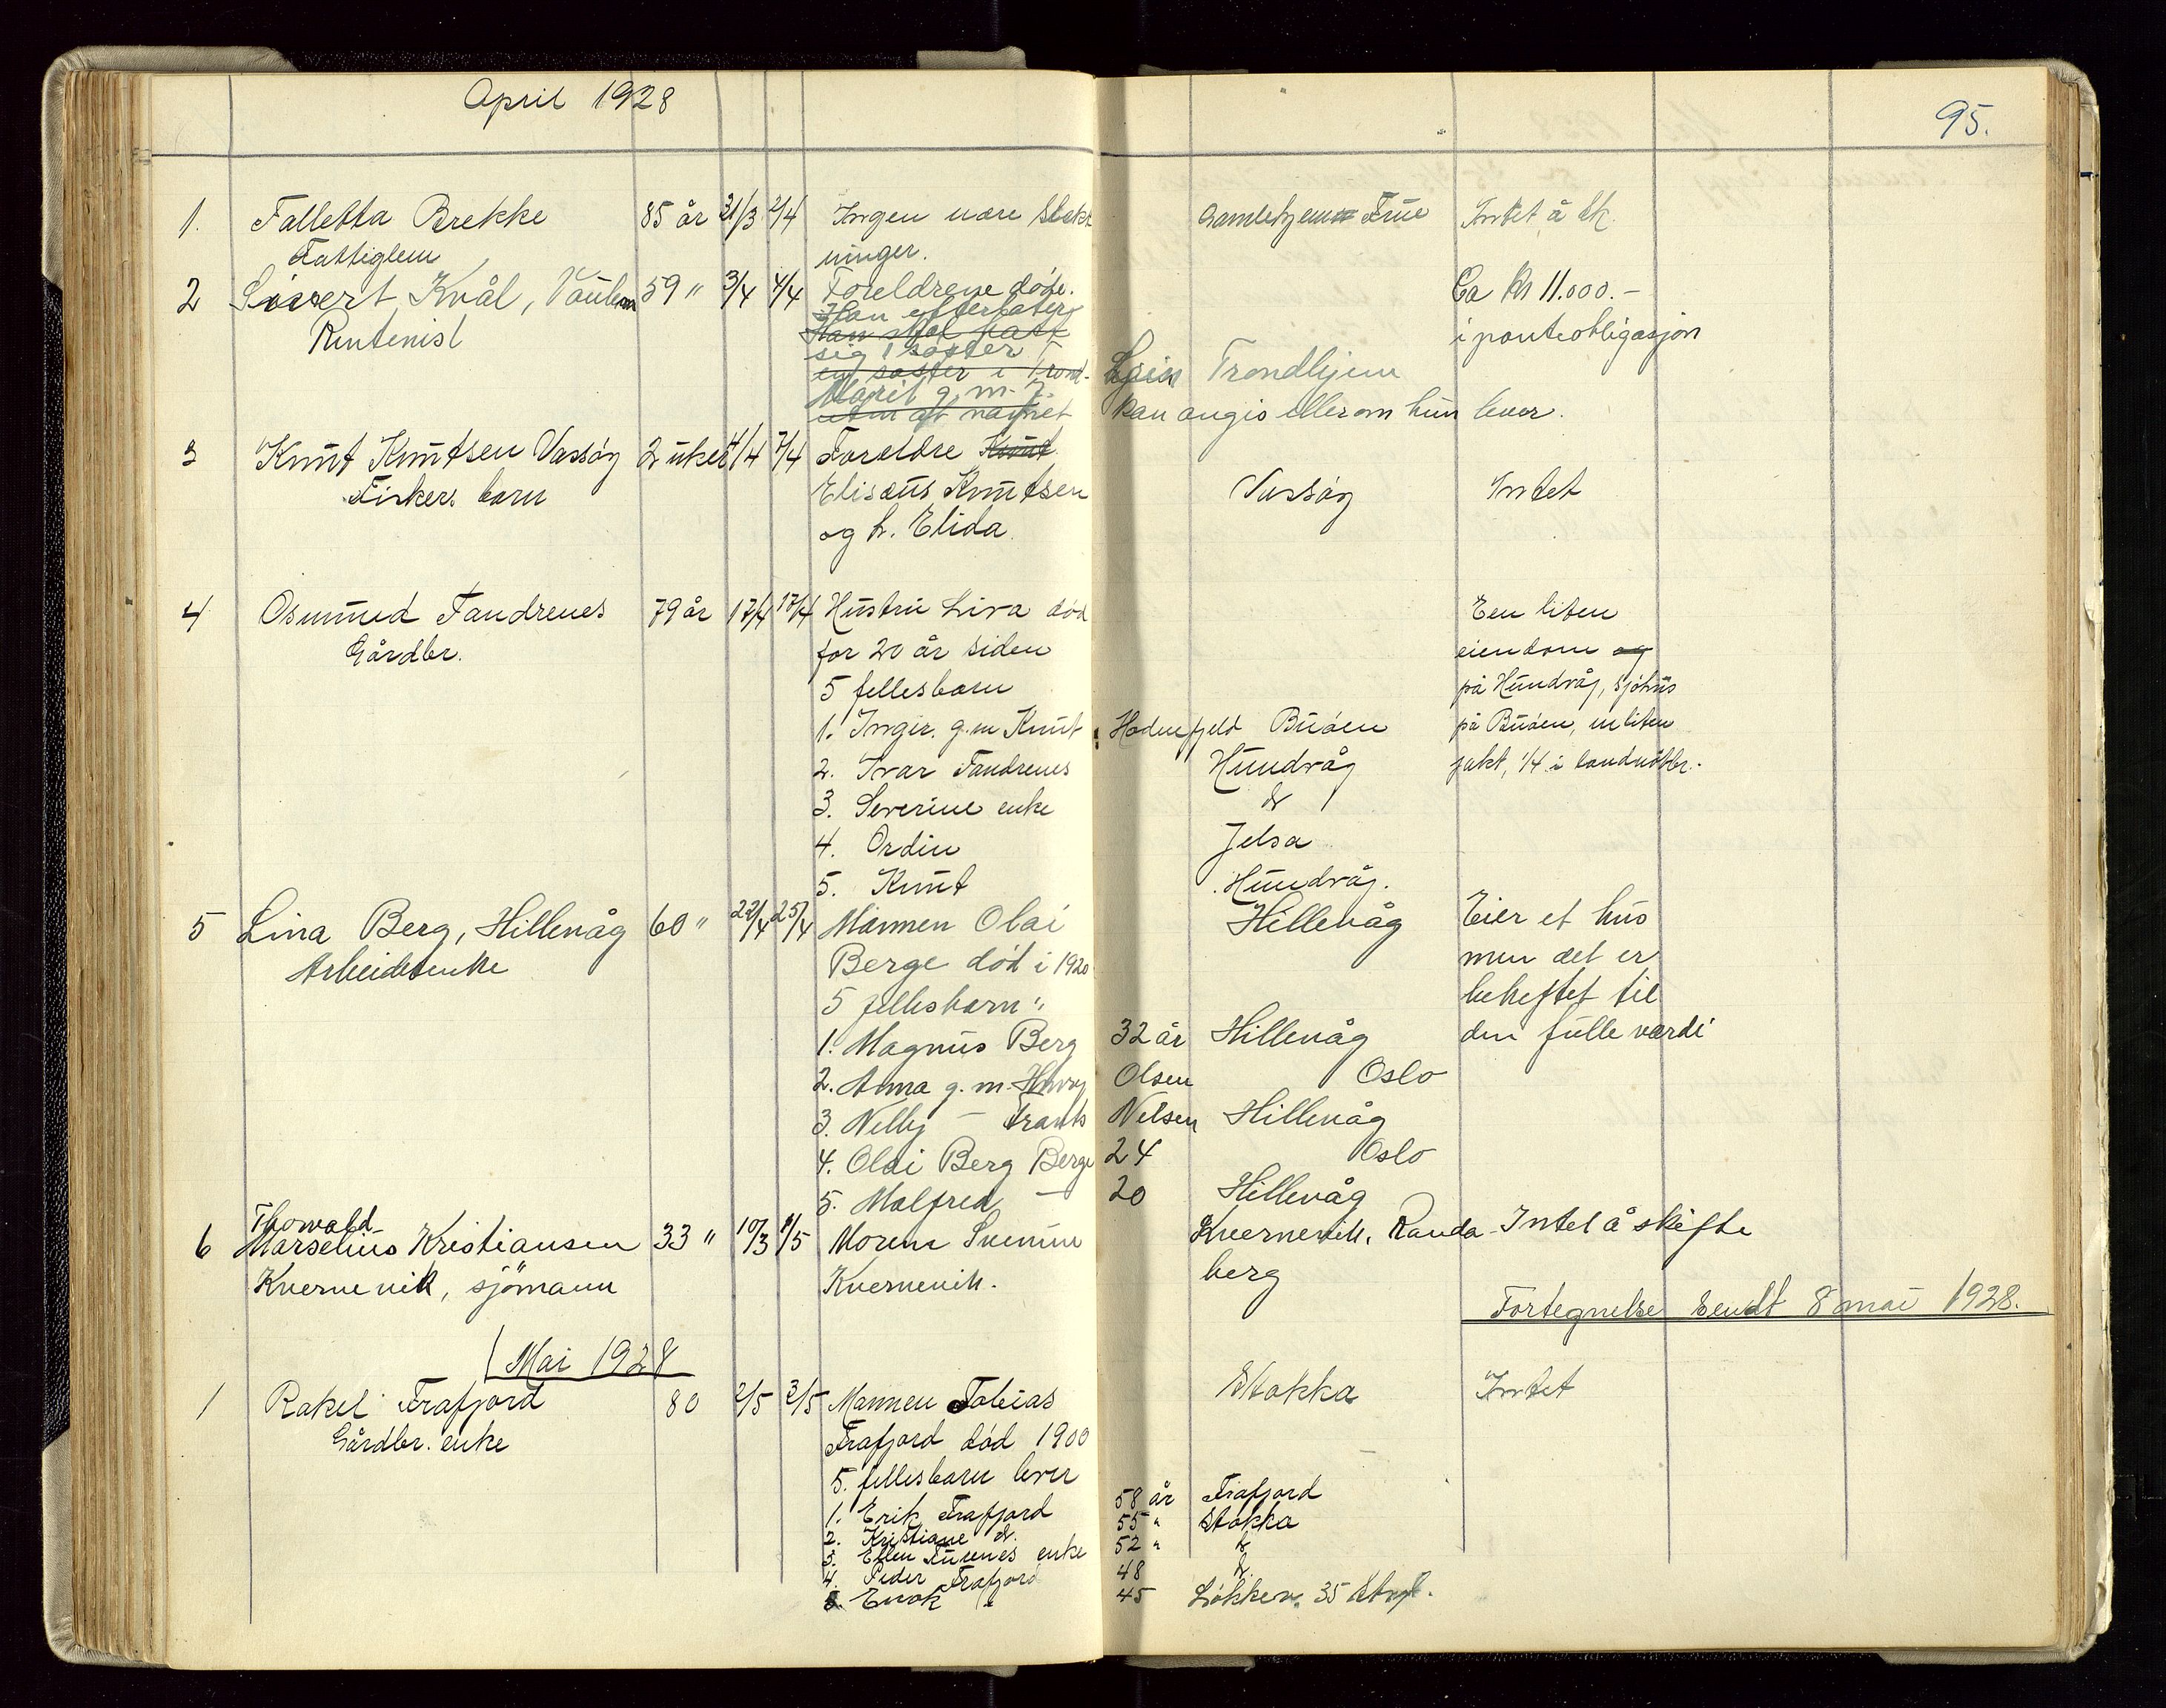 April 1928
95.
1. Falletta Brekke 85 år 31/3 2/4 Ingen nære slekt Gamlehjem Frue Intet å sk.
Fattiglem ninger.
2 Sivert Kvål, 59 " 3/4 4/4 Foreldrene døde. Ca kr 11.000.-
Han efterlater
Rentenist Han skal hatt i panteobligasjon
sig 1 søster
en søster i Trond- Trondhjem
Marit g.m.
uten at navnet kan angis eller om hun lever.
3 Knut Knutsen Vassøy 2 uker 4/4 7/4 Foreldre Knut
Fiskers barn Elisæus Knutsen Vassøy Intet
og h. Elida
4 Osmund Tandrenes 79 år 12/4 17/4 Hustru Liva død Een liten
Gårdbr. for 20 år siden eiendom og
5 fellesbarn på Hundvåg, sjøhus
1. Inger. g.m Knut Hodnefjeld Buøen på Buøen, en liten
2. Ivar Tandrenes Hundvåg jakt, 1/4 i landnotbr.
3. Severine enke do
4. Ordin Jelsa
5. Knut Hundvåg.
5 Lina Berg, Hillevåg 60 " 22/4 25/4 Mannen Olai Hillevåg Eier et hus
Arbeidsenke Berge død i 1920 men det er
5 fellesbarn " beheftet til
1. Magnus Berg 32 år Hillevåg den fulle værdi
2. Anna g.m. Harry Olsen Oslo
3. Nelly — Frants Nelsen Hillevåg
4. Olai Berg Berge 24 Oslo
5. Malfred — 20 Hillevåg
Thorvald
6 Marselius Kristiansen 33 " 10/3 1/5 Moren Kvernevik, Randa- Intet å skifte
Kvernevik, sjömann Kvernevik. berg
Fortegnelse sendt 8 mai 1928.
Mai 1928
1 Rakel Frafjord 80 2/5 3/5 Mannen Tobias Stokka Intet
Gårdbr. enke Frafjord død 1900
5. fellesbarn lever
1. Erik Frafjord 58 år Frafjord
2. Kristiane do. 55 " Stokka
3. Ellen enke 52 " do
4. Peder Frafjord 48 do.
5. Enok " 45 Løkkev. 35 Stvgr.